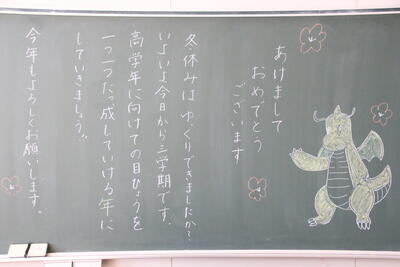 あけまして
おめでとう
ございます
冬休みは ゆっくりできましたか?
いよいよ今日から三学期です。
高学年に向けての目ひょうを
一つ一つたっ成していける年に
していきましょう!!
今年もよろしくお願いします。